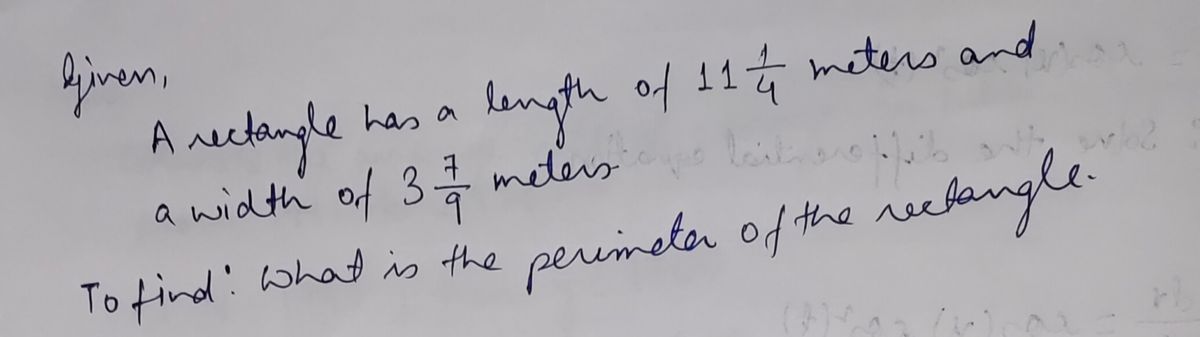 Given,
A rectangle has a length of 11 1/4 meters and
a width of 3 7/9 meters
To find: What is the perimeter of the rectangle.